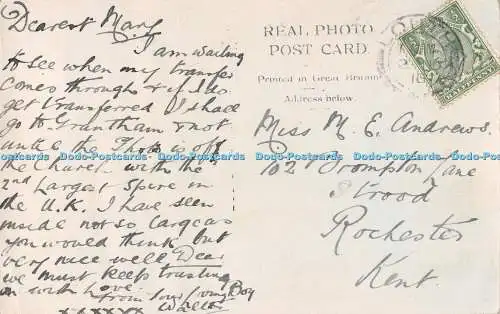 Dearest Mary
I am waiting
to see when my transfer
comes through & if I do
get transferred I shall
go to Grantham & not
until the Photo is off
the Church with the
2nd Largest Spire in
the U.K. I have seen
inside not so large as
you would think but
very nice well Dear
we must keep trusting
on with Love
from your loving Boy
xxxxxx Walter
REAL PHOTO
POST CARD.
Printed in Great Britain
Address below.
Miss M. E. Andrews.
102 Frompton Lane
Strood
Rochester
Kent.
Dodo-Postcards Dodo-Postcards Dodo-Postcards Dodo-Postcards Dodo-Postcards Dodo-Postcards